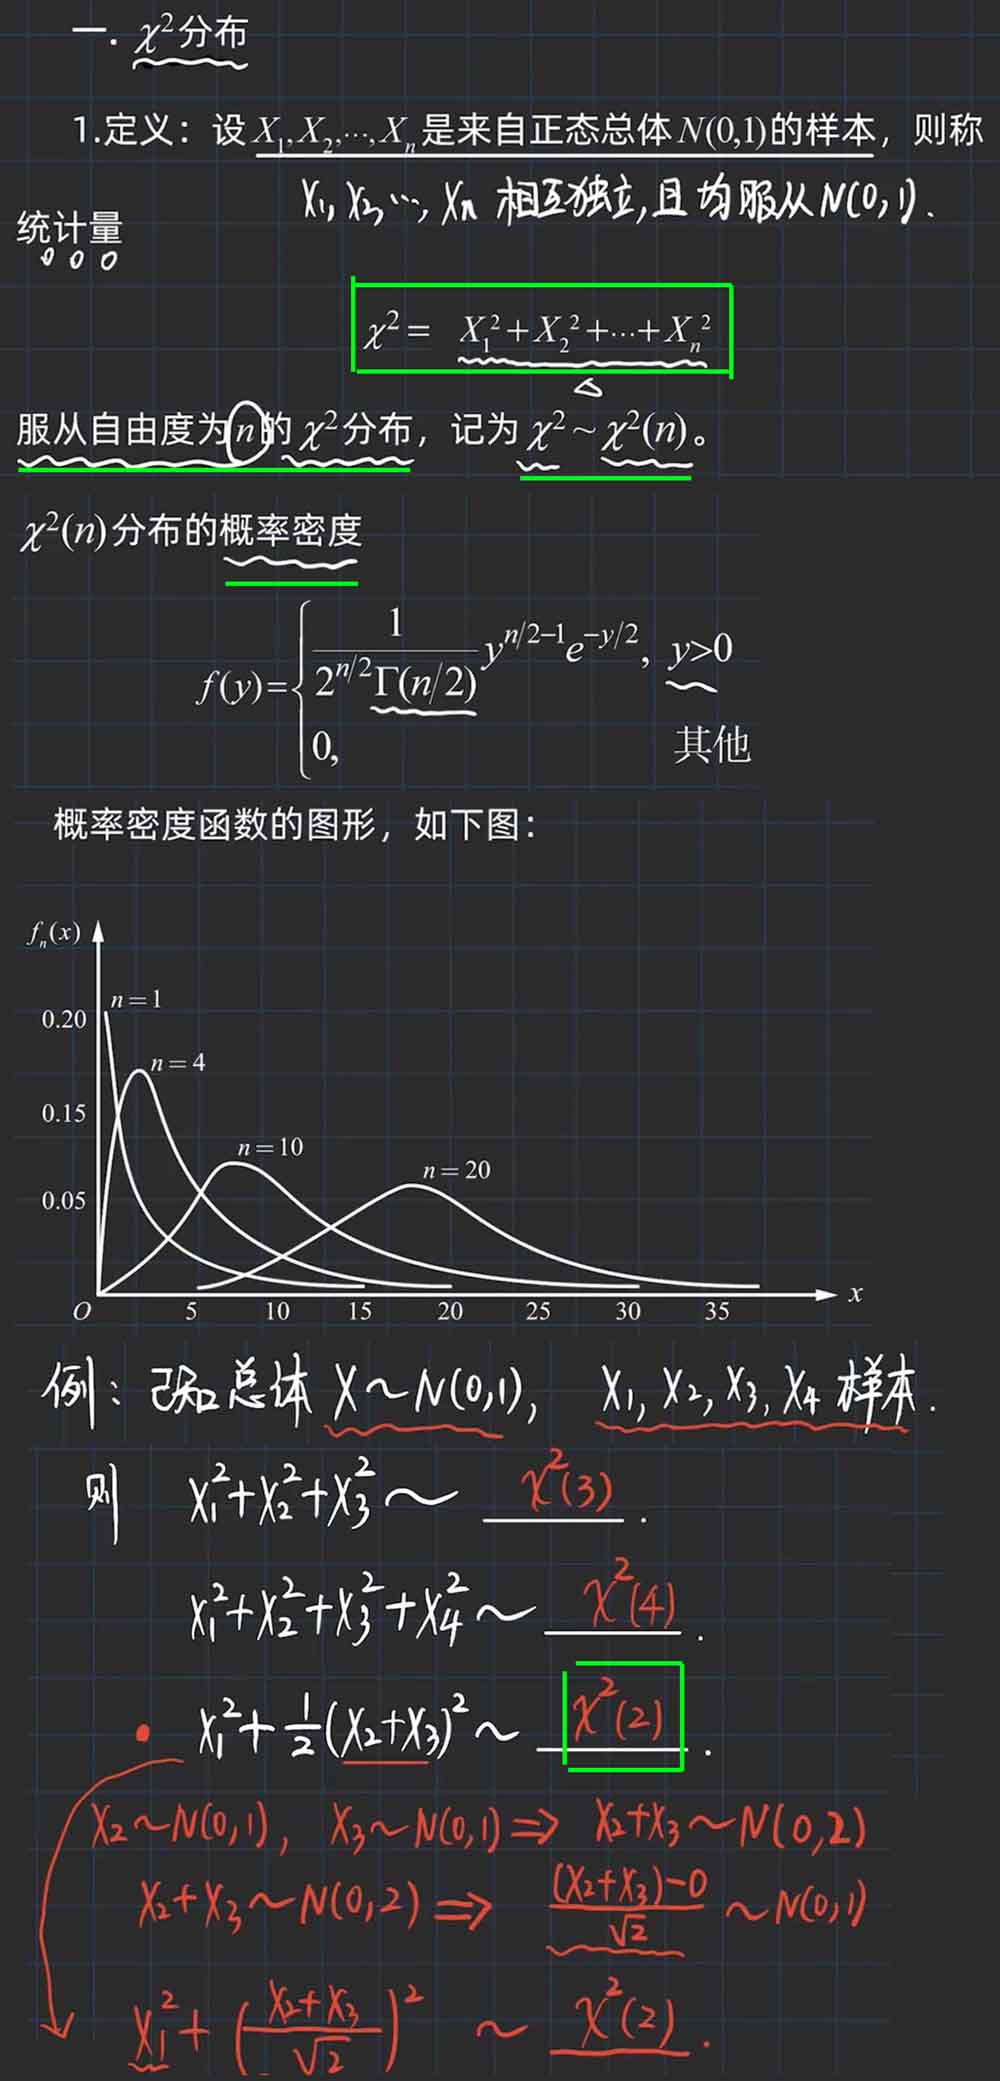 一. χ²分布
1.定义：设X₁,X₂,…,Xₙ是来自正态总体N(0,1)的样本，则称
X₁, X₂, …, Xₙ 相互独立, 且均服从N(0,1).
统计量
χ² = X₁²+X₂²+…+Xₙ²
服从自由度为n的χ²分布，记为χ²~χ²(n)。
χ²(n)分布的概率密度
f(y)={ 1/(2^{n/2}Γ(n/2)) y^{n/2−1}e^{−y/2}, y>0
0, 其他
概率密度函数的图形，如下图：
fₙ(x)
n=1
0.20
n=4
0.15
n=10
n=20
0.05
O 5 10 15 20 25 30 35 x
例：已知总体 X~N(0,1), X₁, X₂, X₃, X₄ 样本.
则 X₁²+X₂²+X₃² ~ χ²(3).
X₁²+X₂²+X₃²+X₄² ~ χ²(4).
X₁²+½(X₂+X₃)² ~ χ²(2).
X₂~N(0,1), X₃~N(0,1) ⇒ X₂+X₃~N(0,2)
X₂+X₃~N(0,2) ⇒ ((X₂+X₃)−0)/√2 ~ N(0,1)
X₁²+((X₂+X₃)/√2)² ~ χ²(2).